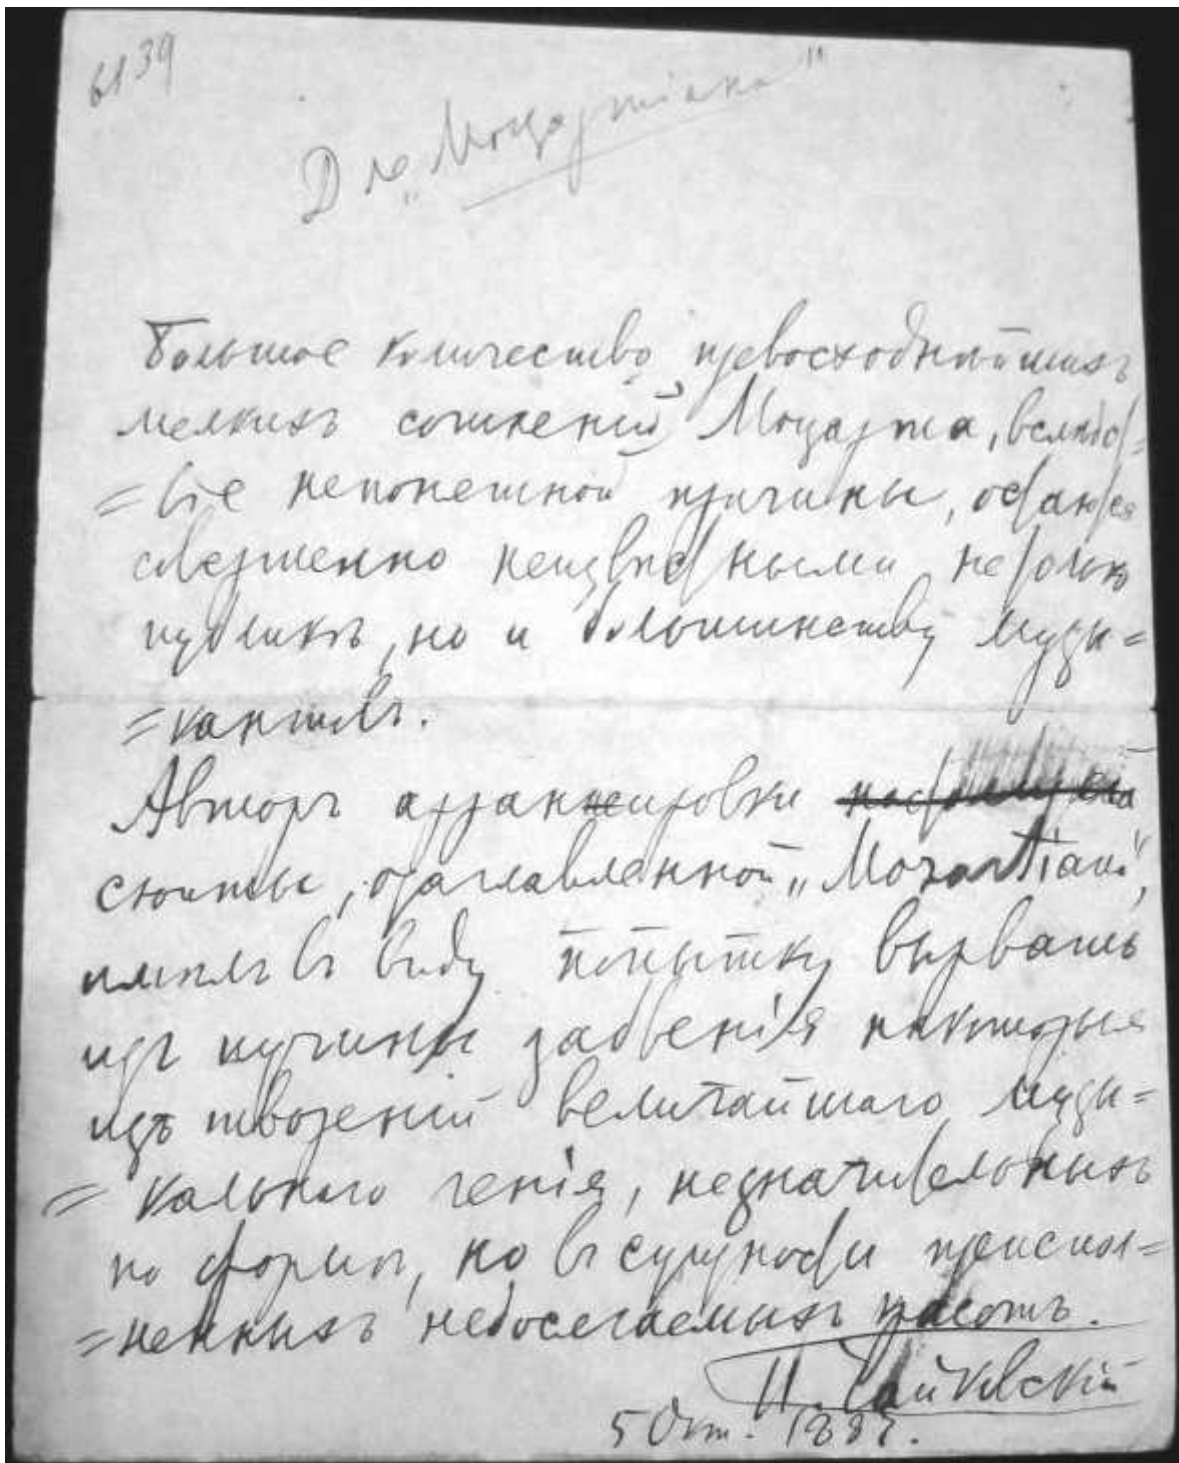 6139
Для „Моцартiана"
Большое количество превосходнѣйшихъ
мелкихъ сочиненiй Моцарта, вслѣдст=
=вiе непонятной причины, остаются
совершенно неизвѣстными не только
публикѣ, но и большинству музы=
=кантовъ.
Авторъ арранжировки
сюиты, озаглавленной „Mozartiana",
имѣлъ въ виду попытку вырвать
изъ пучины забвенiя нѣкоторыя
изъ творенiй величайшаго музы=
=кальнаго генiя, незначительныхъ
по формѣ, но въ сущности преиспол=
=ненныхъ недосягаемыхъ красотъ.
П. Чайковскiй
5 Окт. 1887.